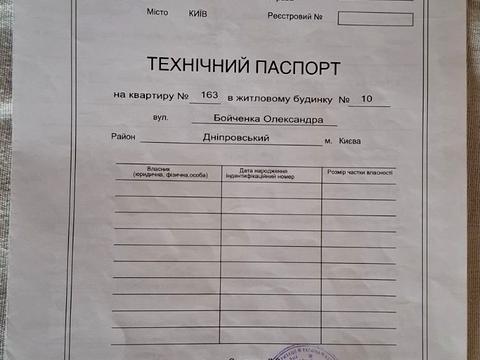 Місто КИЇВ Реєстровий №
ТЕХНІЧНИЙ ПАСПОРТ
на квартиру № 163 в житловому будинку № 10
вул. Бойченка Олександра
Район Дніпровський м. Києва
Власник Дата народження Розмір частки власності
(юридична, фізична,особа) індентифікаційний номер